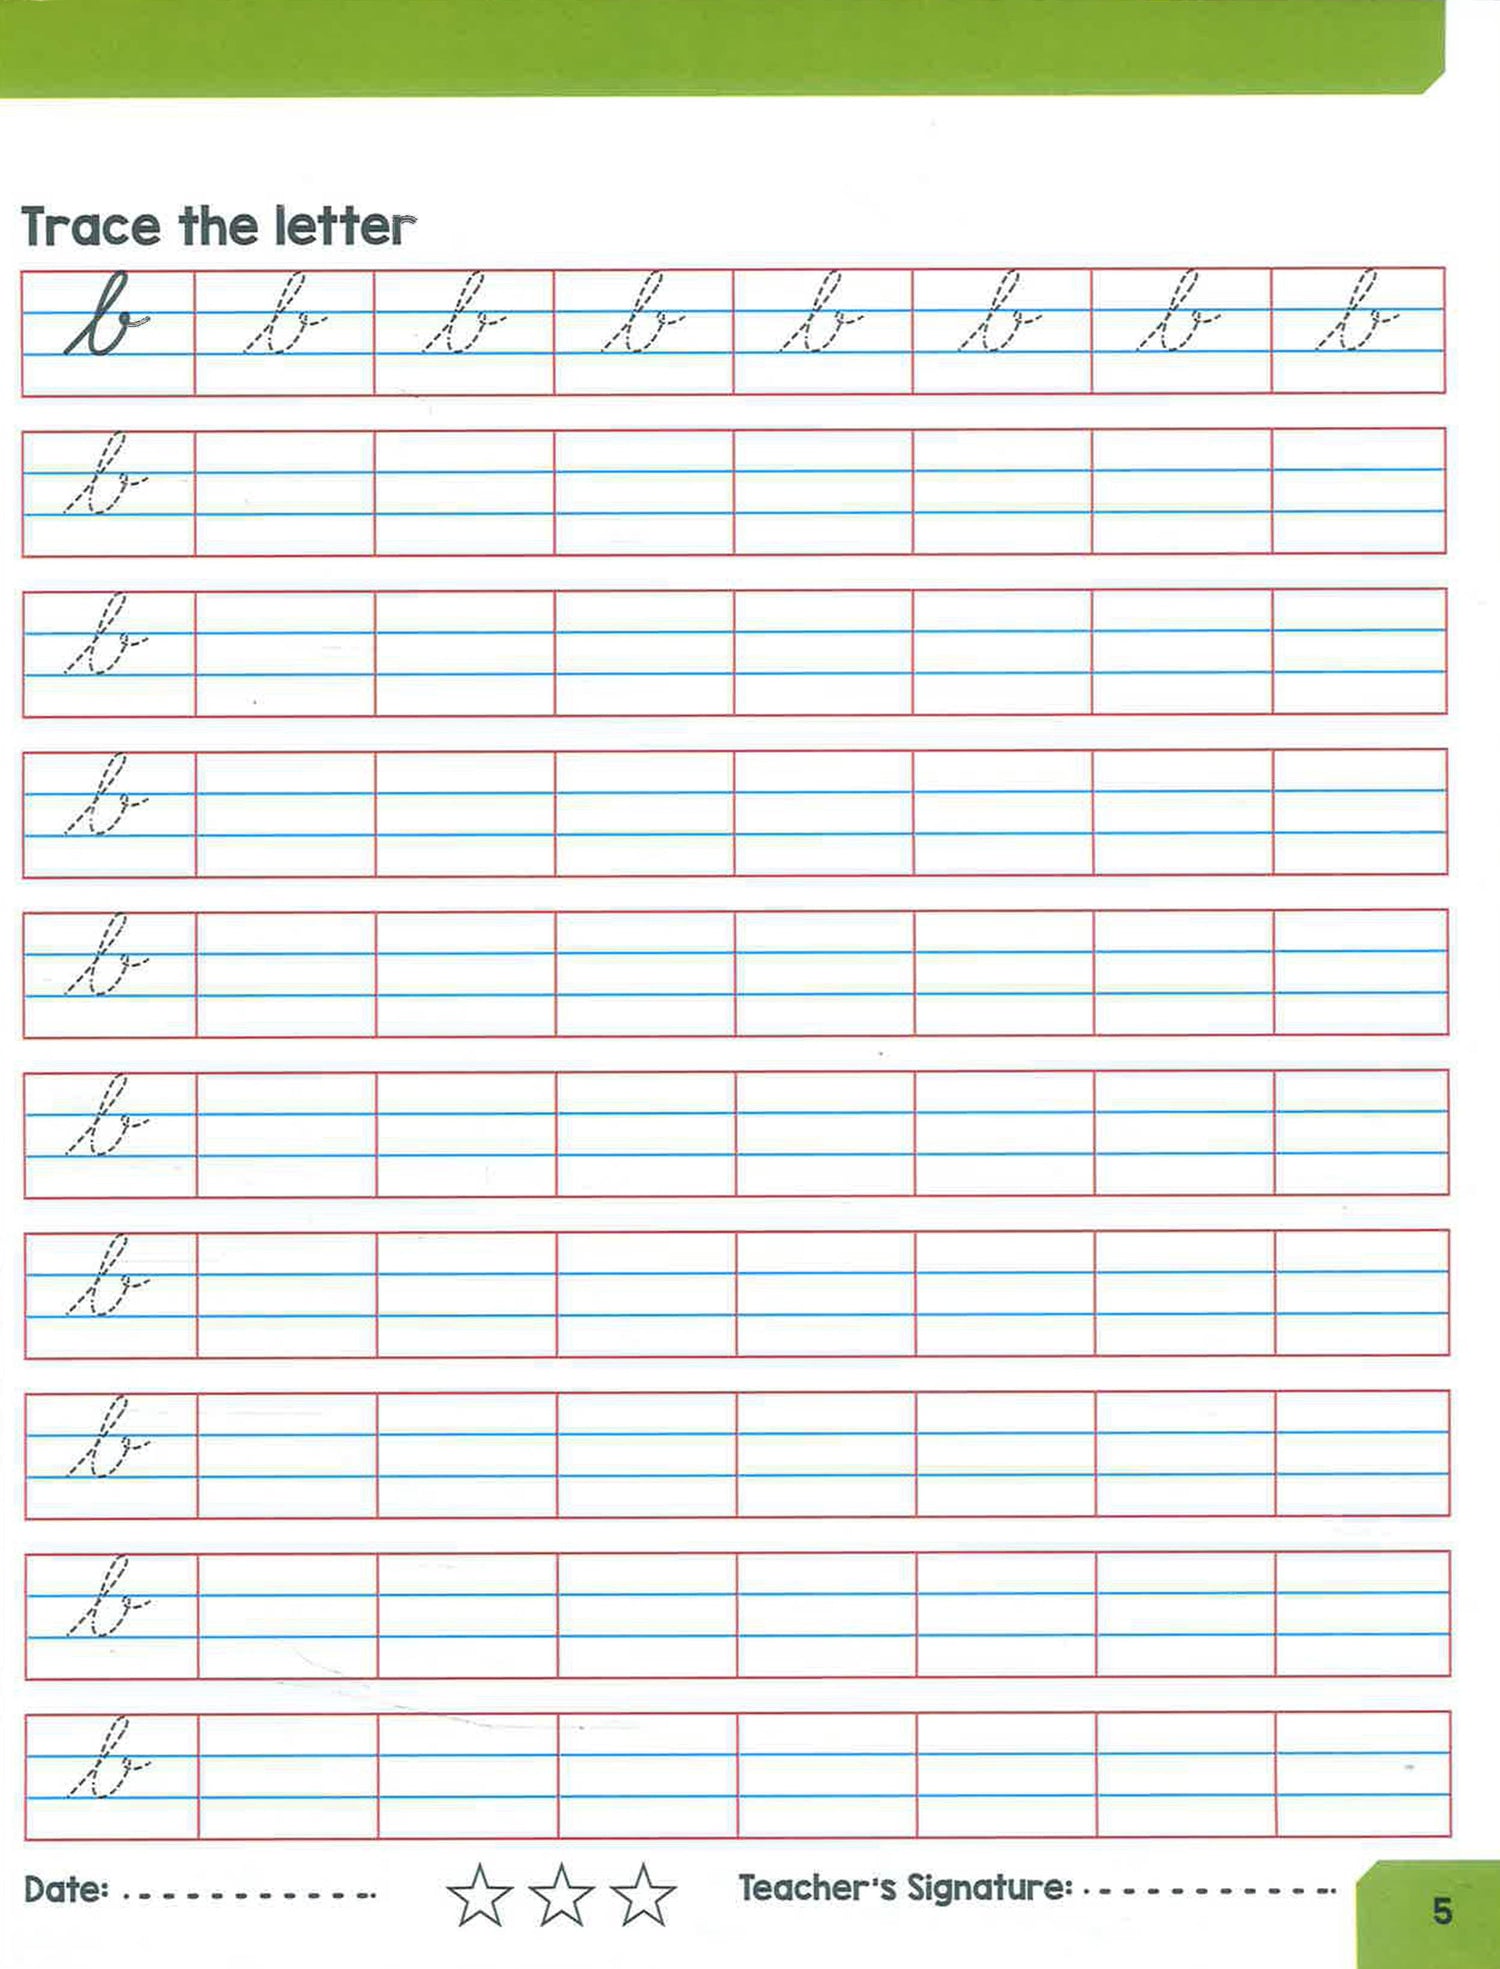 Trace the letter
b b b b b b b b
b
b
b
b
b
b
b
b
b
Date: Teacher's Signature:
5